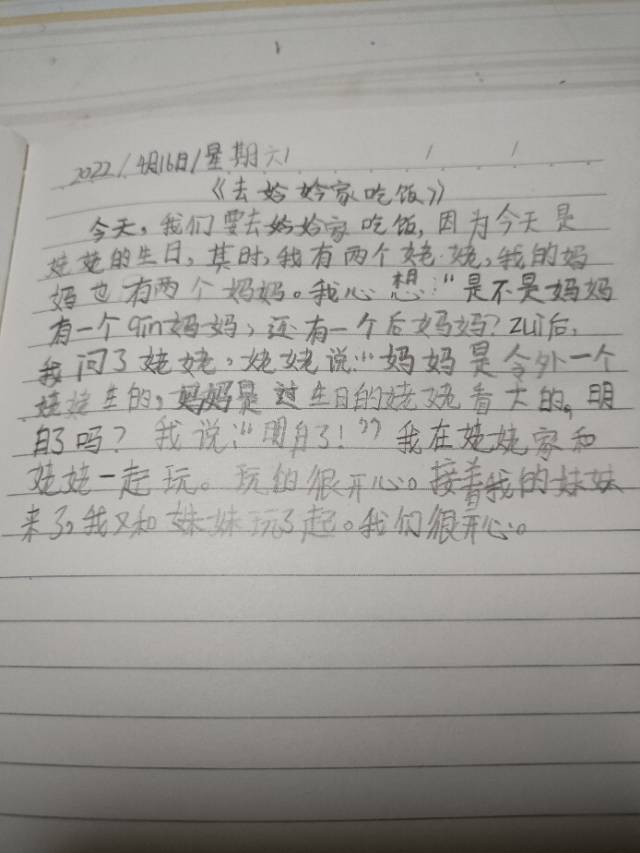 2022/4月16日/星期六/
《去姈姈家吃饭》
今天,我们要去姈姈家吃饭,因为今天是
姥姥的生日,其时,我有两个姥姥,我的妈
妈也有两个妈妈。我心想:“是不是妈妈
有一个qin妈妈,还有一个后妈妈?zui后,
我问了姥姥,姥姥说:“妈妈是令外一个
姥姥生的,妈妈是过生日的姥姥看大的。明
白了吗?我说:“明白了!”我在姥姥家和
姥姥一起玩。玩的很开心。接着我的妹妹
来了,我又和妹妹玩了起。我们很开心。